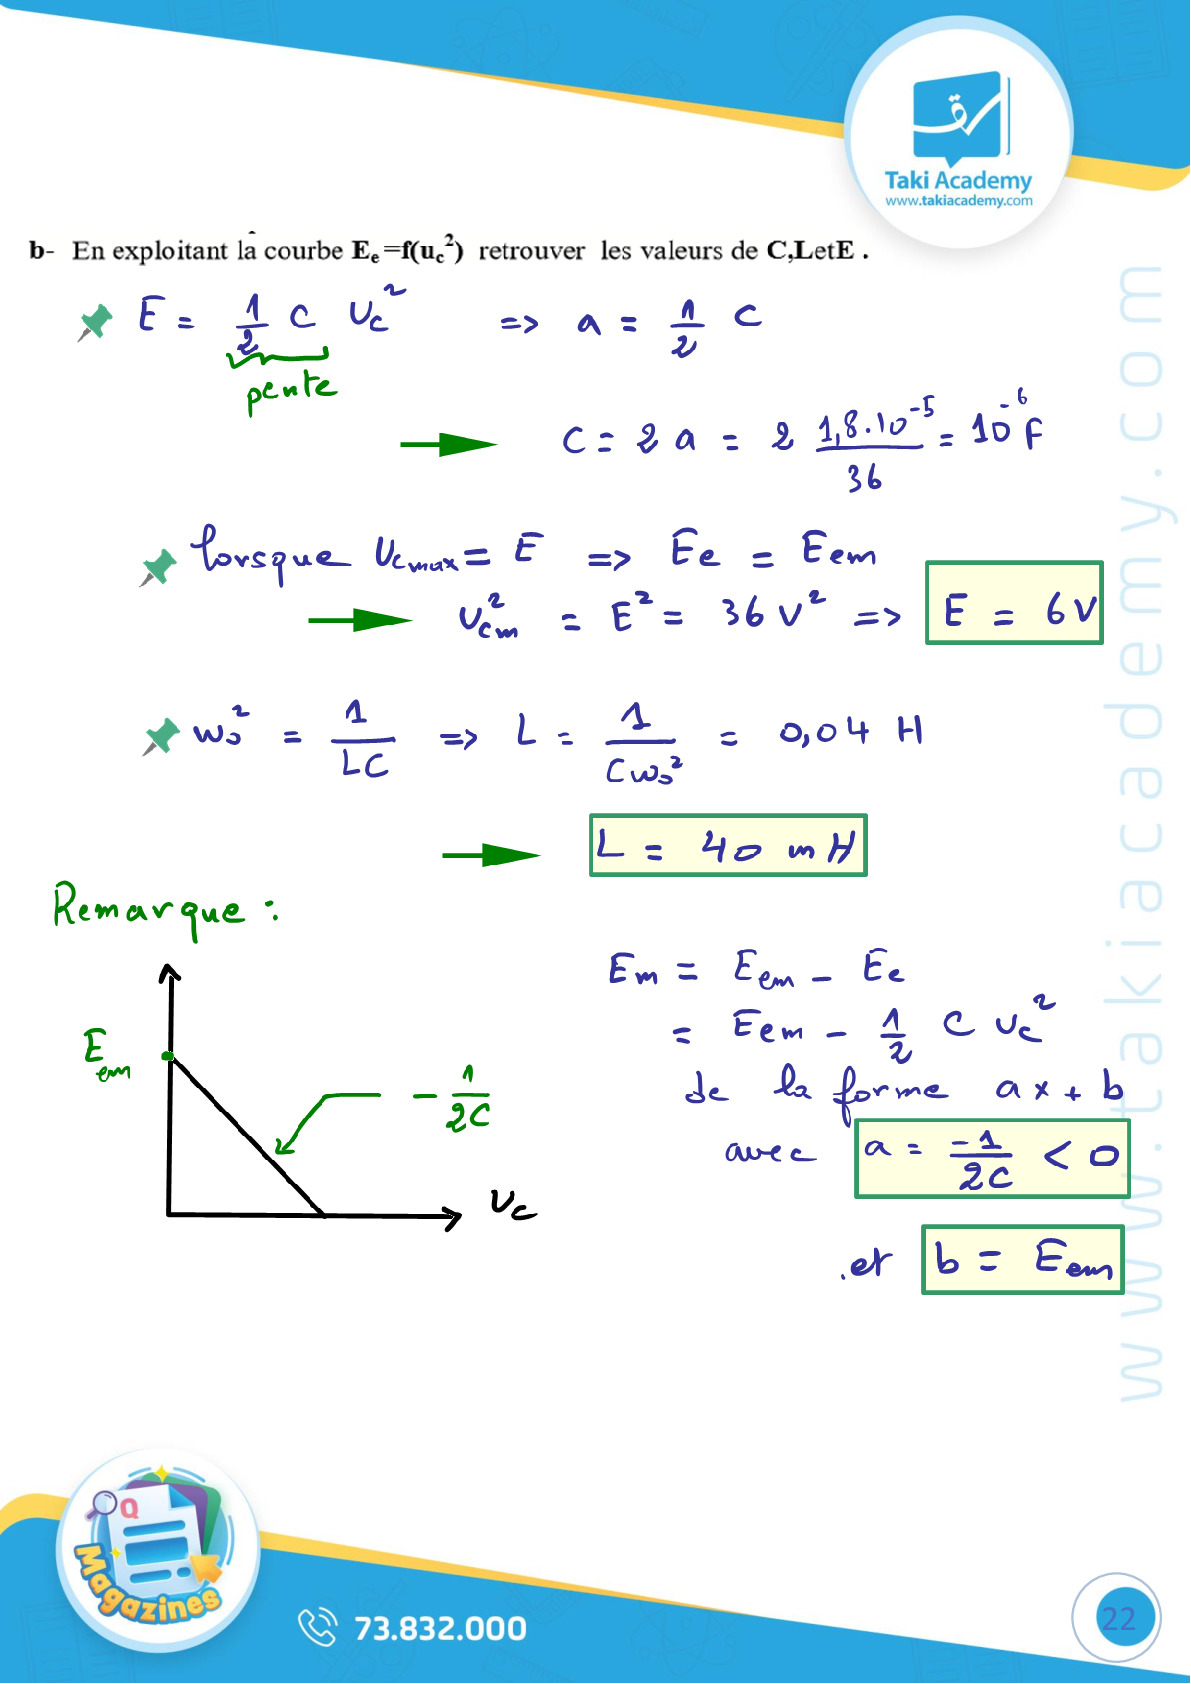 Taki Academy
www.takiacademy.com
b- En exploitant la courbe Ee=f(uc²) retrouver les valeurs de C,LetE .
E = 1/2 C Uc² => a = 1/2 C
pente
C = 2 a = 2 1,8.10⁻⁵/36 = 10⁻⁶ F
lorsque Ucmax = E => Ee = Eem
Ucm² = E² = 36 V² => E = 6V
ω₀² = 1/LC => L = 1/Cω₀² = 0,04 H
L = 40 mH
Remarque :
Em = Eem - Ee
= Eem - 1/2 C Uc²
de la forme ax + b
avec a = -1/2C < 0
.et b = Eem
Eem
- 1/2C
Uc
www.takiacademy.com
Q
Magazines
73.832.000
22